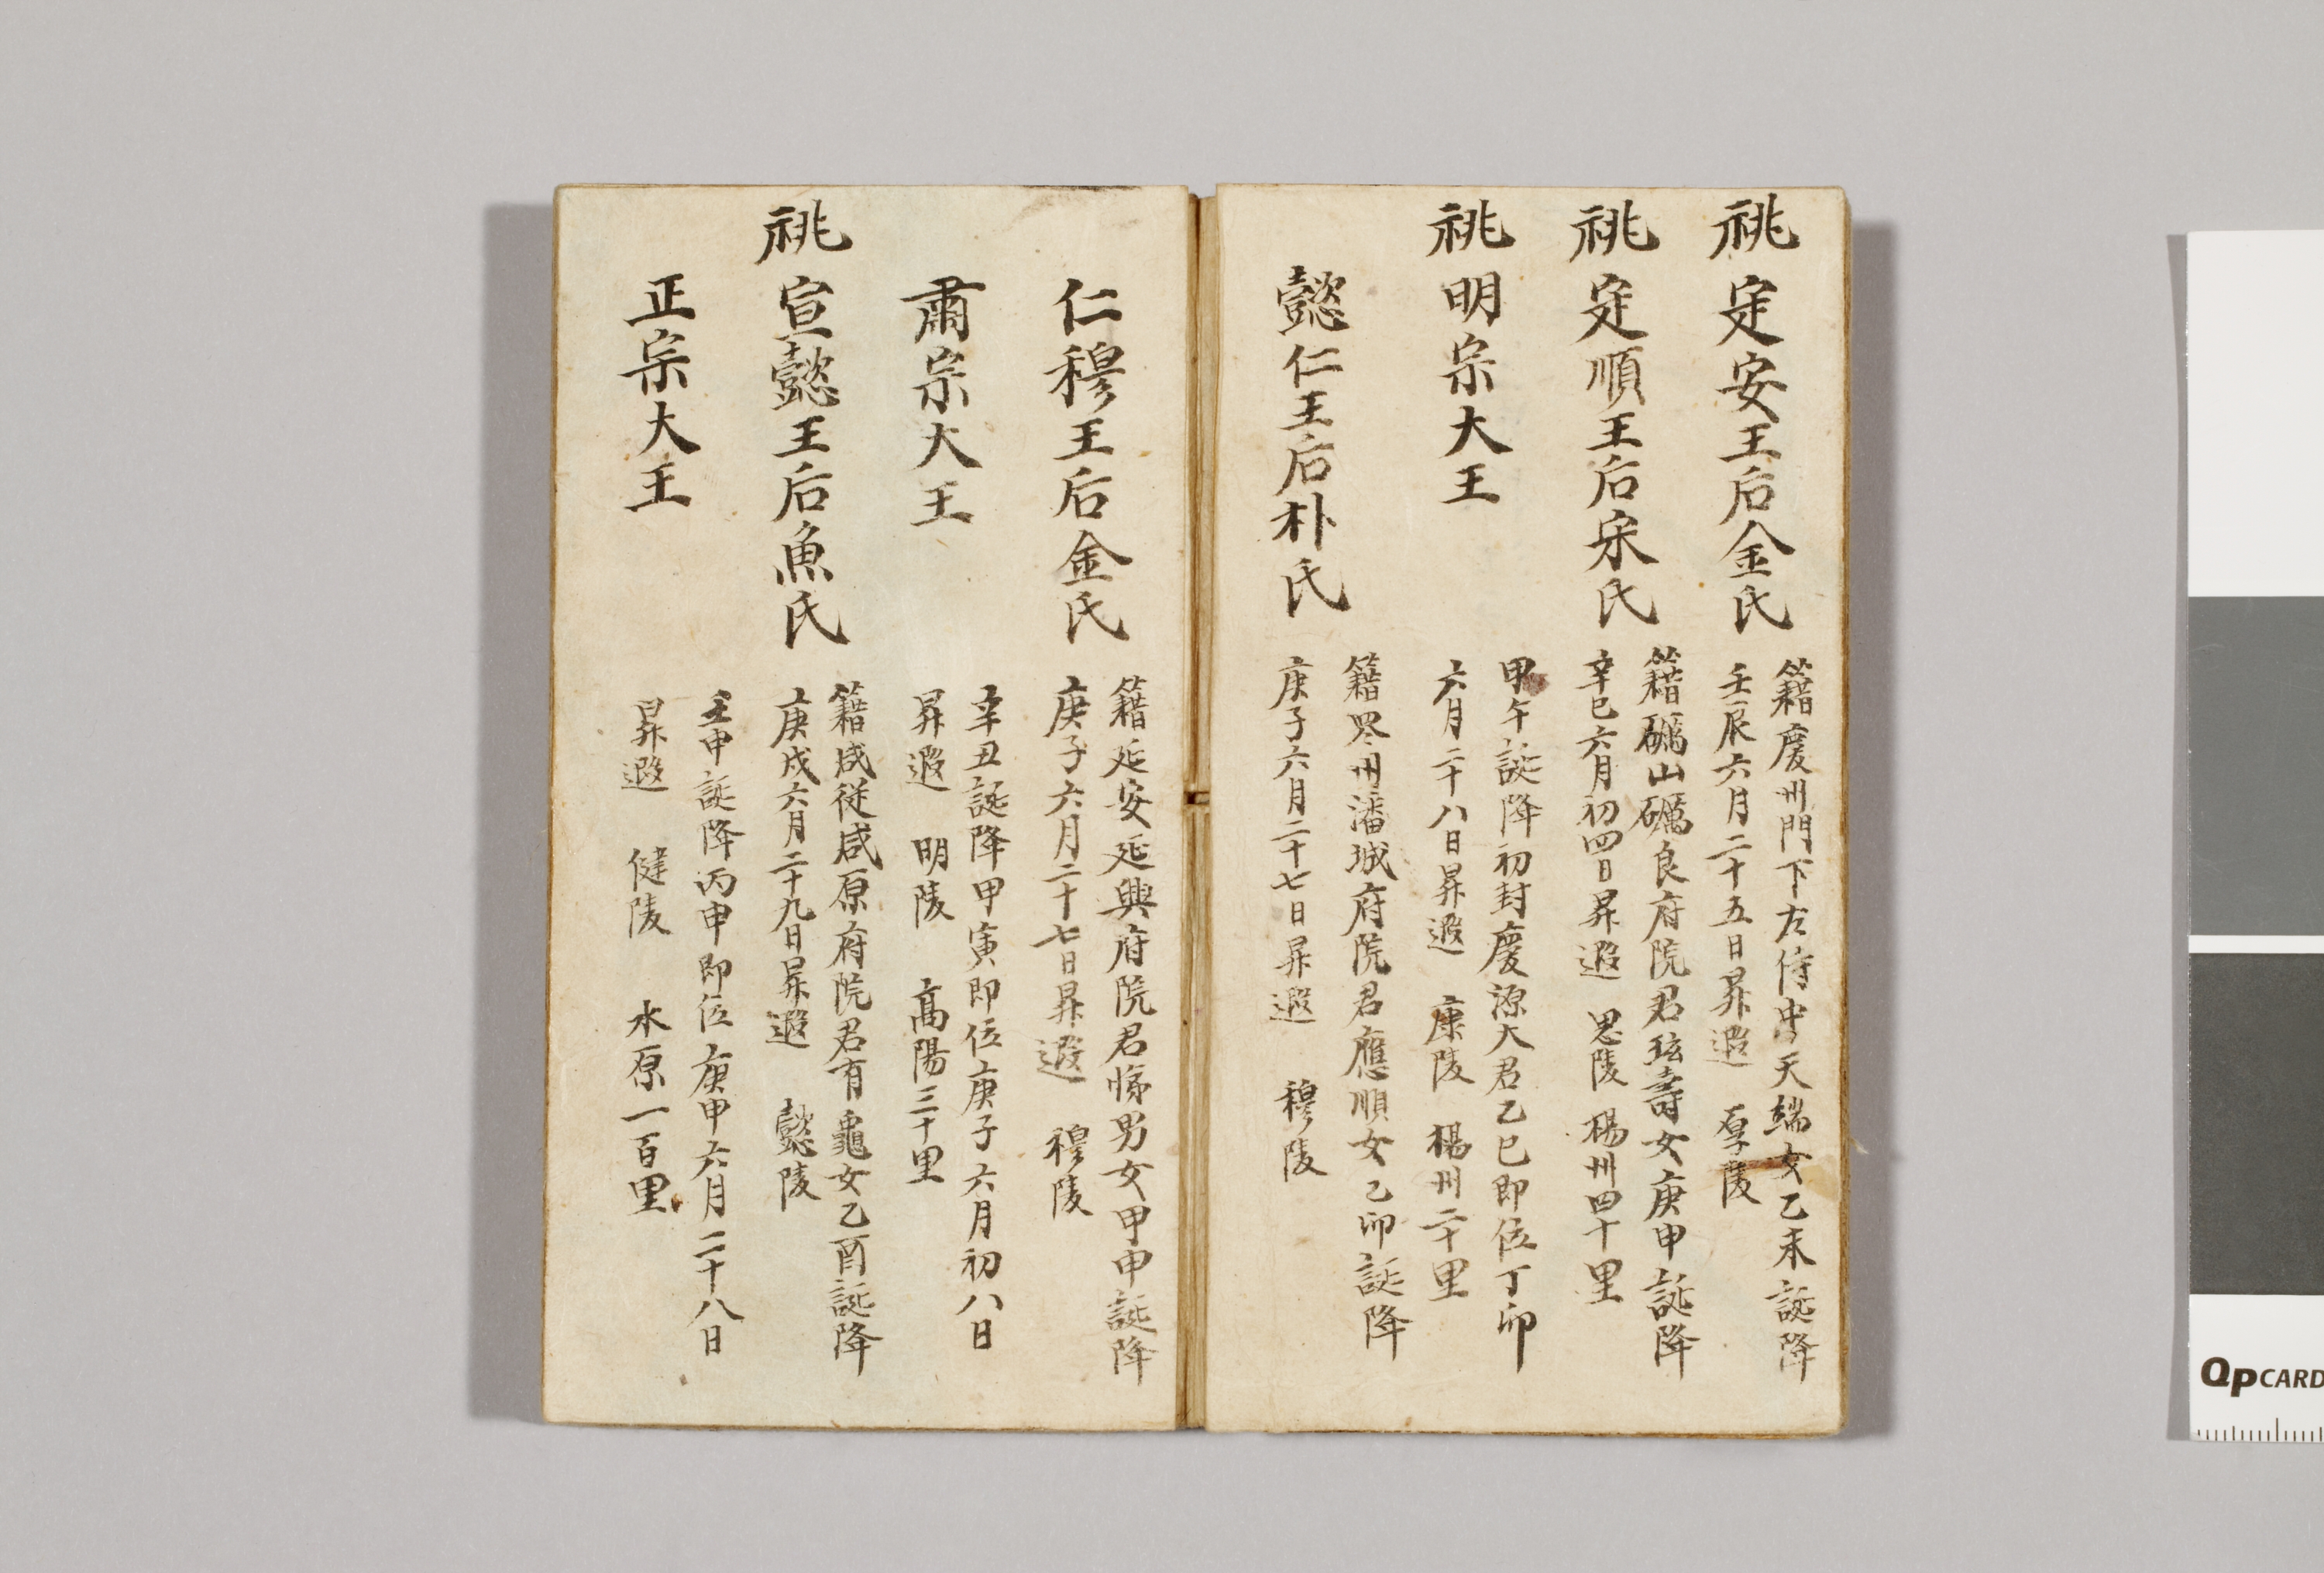 祧 定安王后金氏
籍慶州門下左侍中天端女乙未誕降
壬辰六月二十五日昇遐 厚陵
祧 定順王后宋氏
籍礪山礪良府院君玹壽女庚申誕降
辛巳六月初四日昇遐 思陵 楊州四十里
祧 明宗大王
甲午誕降初封慶源大君乙巳即位丁卯
六月二十八日昇遐 康陵 楊州二十里
懿仁王后朴氏
籍羅州潘城府院君應順女乙卯誕降
庚子六月二十七日昇遐 穆陵
仁穆王后金氏
籍延安延興府院君悌男女甲申誕降
庚子六月二十七日昇遐 穆陵
肅宗大王
辛丑誕降甲寅即位庚子六月初八日
昇遐 明陵 高陽三十里
祧 宣懿王后魚氏
籍咸從咸原府院君有龜女乙酉誕降
庚戌六月二十九日昇遐 懿陵
正宗大王
壬申誕降丙申即位庚申六月二十八日
昇遐 健陵 水原一百里
QPCARD